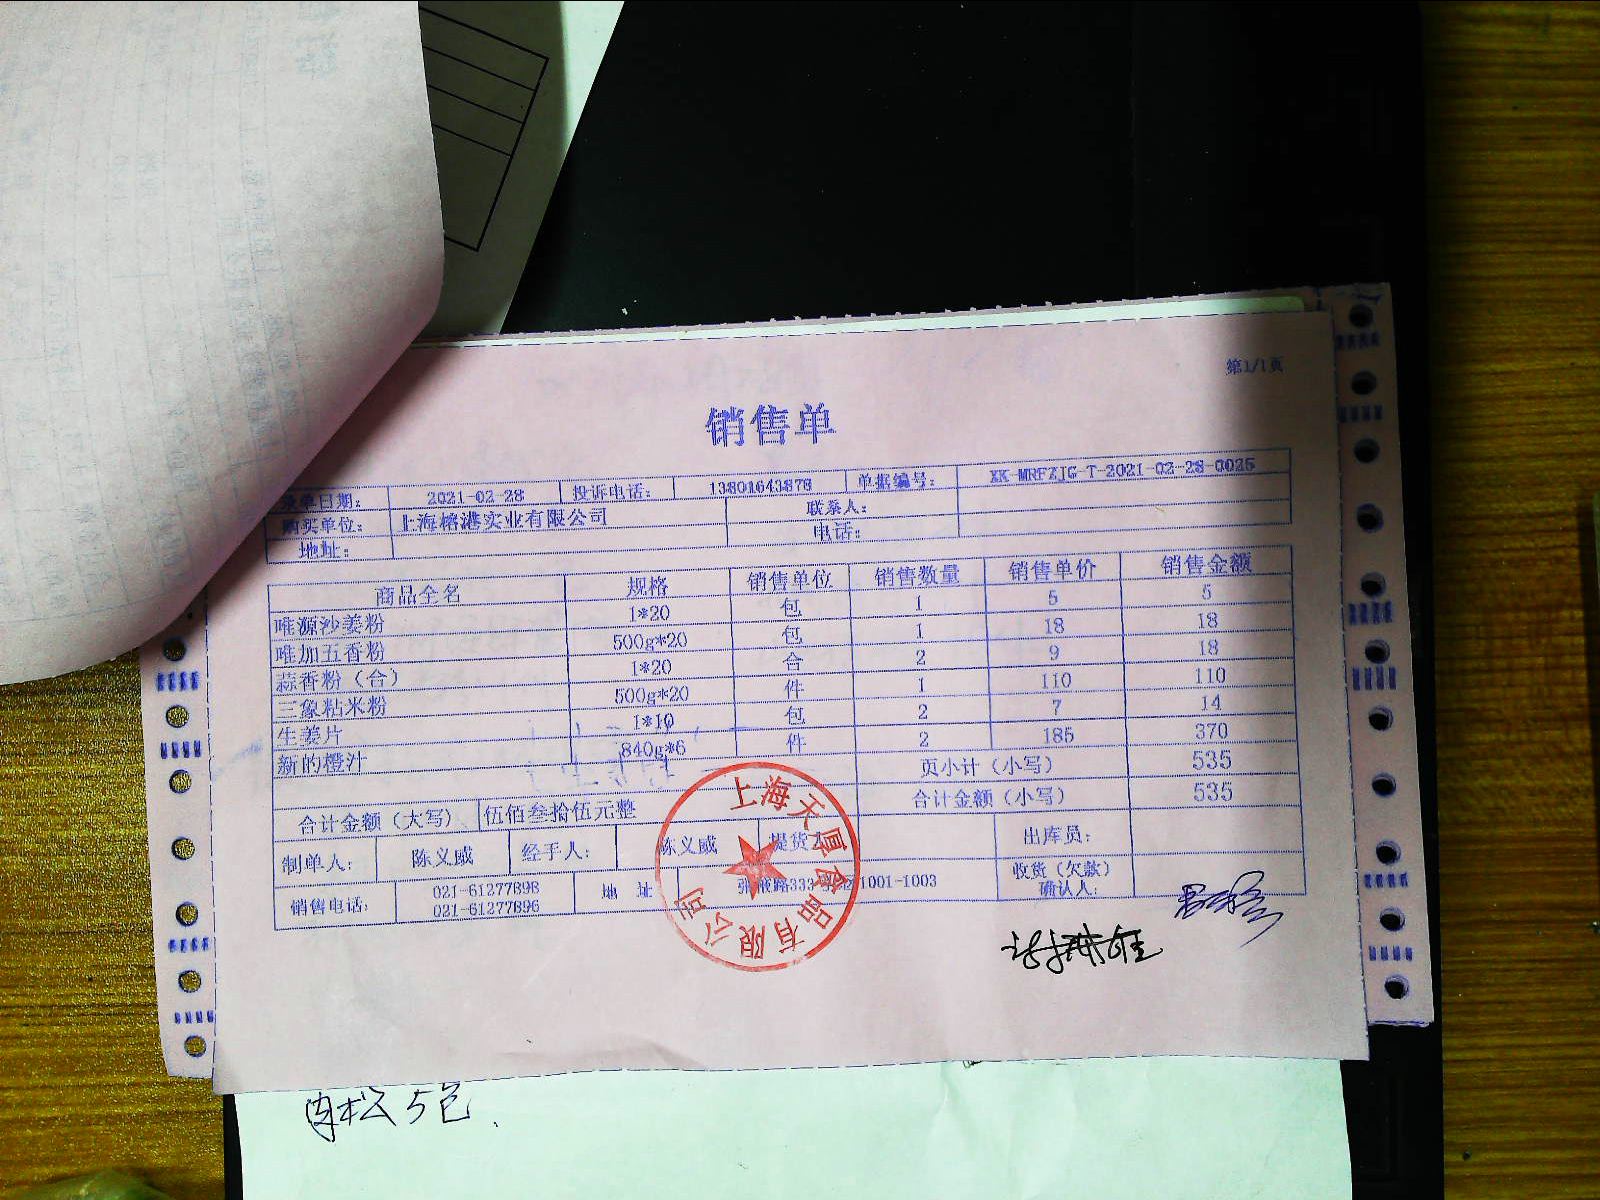 第1/1页
销售单
录单日期： 2021-02-28 投诉电话： 13801643878 单据编号： XK-MRFZJG-T-2021-02-28-0025
购买单位： 上海榕港实业有限公司 联系人：
地址： 电话：
商品全名 规格 销售单位 销售数量 销售单价 销售金额
唯源沙姜粉 1*20 包 1 5 5
唯加五香粉 500g*20 包 1 18 18
蒜香粉（合） 1*20 合 2 9 18
三象粘米粉 500g*20 件 1 110 110
生姜片 1*10 包 2 7 14
新的橙汁 840g*6 件 2 185 370
页小计（小写） 535
合计金额（大写） 伍佰叁拾伍元整 合计金额（小写） 535
制单人： 陈义威 经手人： 陈义威 提货 出库员：
销售电话： 021-61277898 021-61277896 地 址 路333 1001-1003 收货（欠款）确认人：
上海天厚食品有限公司
肉松5包